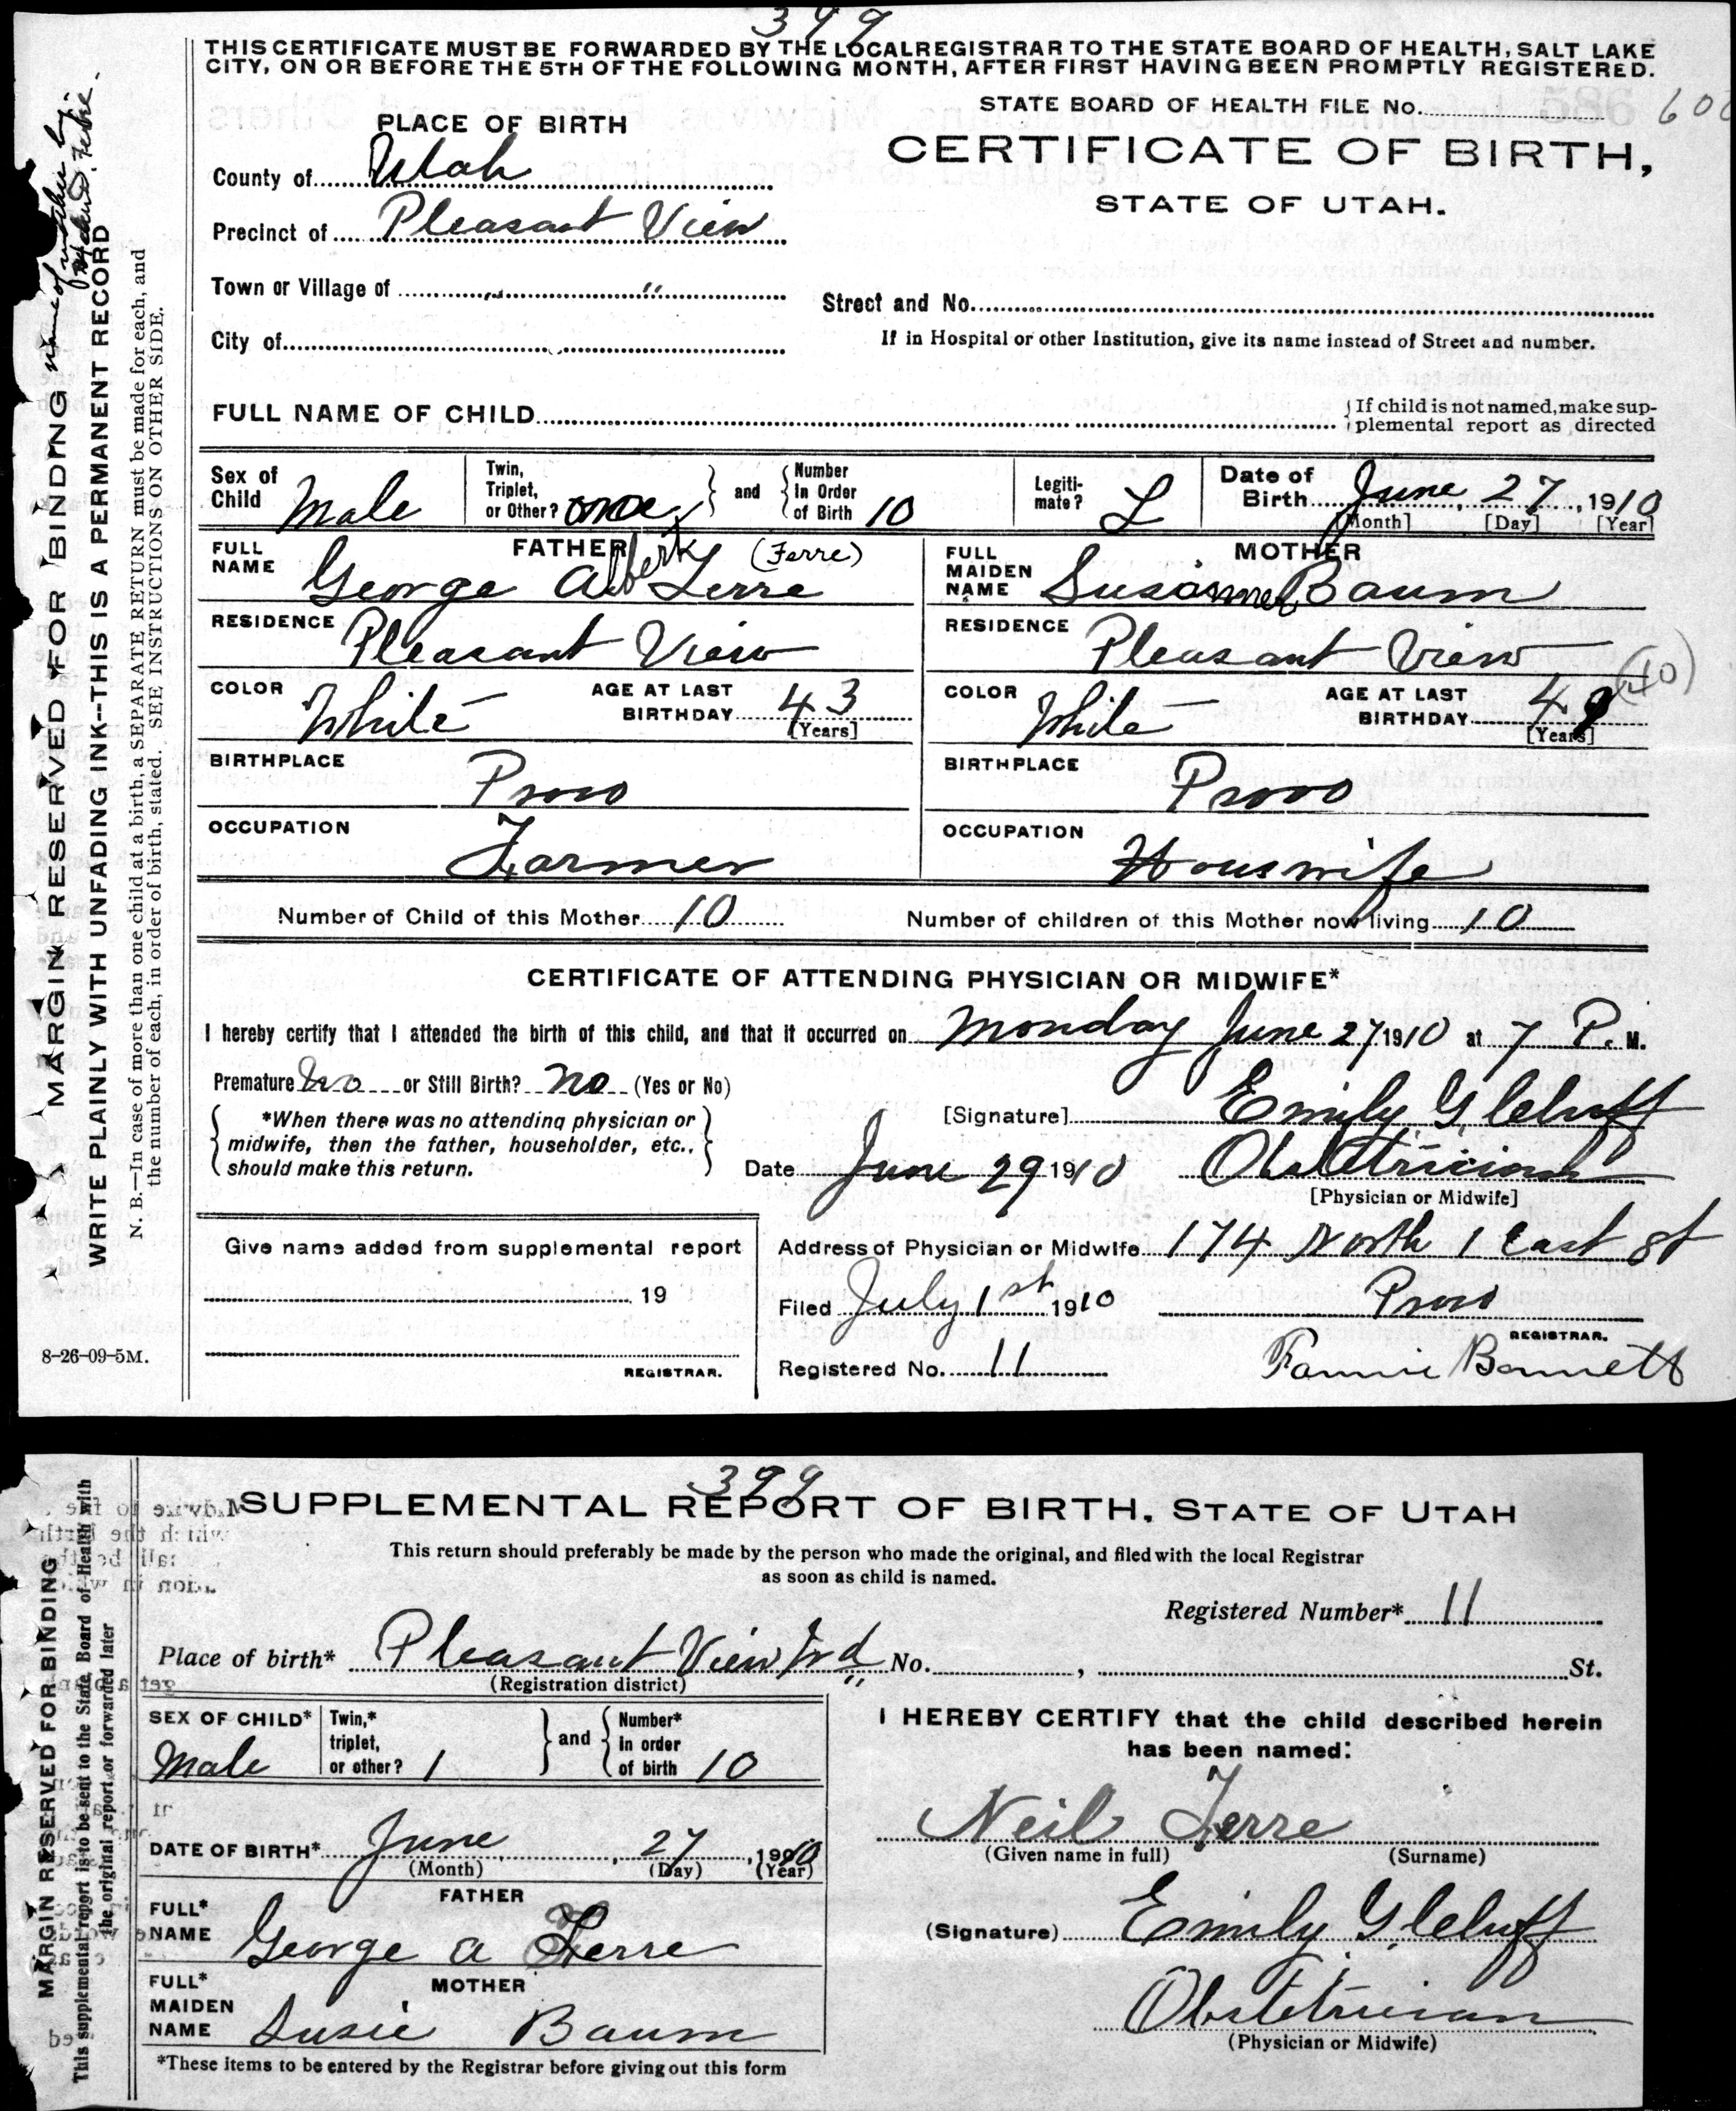 399
THIS CERTIFICATE MUST BE FORWARDED BY THE LOCAL REGISTRAR TO THE STATE BOARD OF HEALTH, SALT LAKE
CITY, ON OR BEFORE THE 5TH OF THE FOLLOWING MONTH, AFTER FIRST HAVING BEEN PROMPTLY REGISTERED.
STATE BOARD OF HEALTH FILE No.
PLACE OF BIRTH
CERTIFICATE OF BIRTH,
STATE OF UTAH.
County of Utah
Precinct of Pleasant View
Town or Village of " "
Street and No.
City of
If in Hospital or other Institution, give its name instead of Street and number.
FULL NAME OF CHILD
If child is not named, make sup-
plemental report as directed
Sex of Child Male
Twin, Triplet, or Other? one and Number In Order of Birth 10
Legiti-mate? L
Date of Birth June 27, 1910
[Month] [Day] [Year]
FATHER
FULL NAME George Albert Ferre (Ferre)
MOTHER
FULL MAIDEN NAME Susanna Baum
RESIDENCE Pleasant View
RESIDENCE Pleasant View
COLOR White AGE AT LAST BIRTHDAY 43 [Years]
COLOR White AGE AT LAST BIRTHDAY (40) [Years]
BIRTHPLACE Provo
BIRTHPLACE Provo
OCCUPATION Farmer
OCCUPATION Houswife
Number of Child of this Mother 10
Number of children of this Mother now living 10
CERTIFICATE OF ATTENDING PHYSICIAN OR MIDWIFE*
I hereby certify that I attended the birth of this child, and that it occurred on Monday June 27, 1910 at 7 P. M.
Premature no or Still Birth? no (Yes or No)
*When there was no attending physician or
midwife, then the father, householder, etc.,
should make this return.
[Signature] Emily G Cluff
Date June 29 1910 Obstetrician
[Physician or Midwife]
Give name added from supplemental report
19
REGISTRAR.
Address of Physician or Midwife 174 North 1 East St
Filed July 1st 1910 Provo
REGISTRAR.
Registered No. 11 Fannie Bonnett
MARGIN RESERVED FOR BINDING
WRITE PLAINLY WITH UNFADING INK--THIS IS A PERMANENT RECORD
N. B.—In case of more than one child at a birth, a SEPARATE RETURN must be made for each, and
the number of each, in order of birth, stated. SEE INSTRUCTIONS ON OTHER SIDE.
8-26-09-5M.
399
SUPPLEMENTAL REPORT OF BIRTH, STATE OF UTAH
This return should preferably be made by the person who made the original, and filed with the local Registrar
as soon as child is named.
Registered Number* 11
Place of birth* Pleasant View Wd No. , St.
(Registration district)
SEX OF CHILD* Male
Twin,* triplet, or other? 1 and Number* In order of birth 10
DATE OF BIRTH* June, 27, 1910
(Month) (Day) (Year)
FATHER
FULL* NAME George A Ferre
MOTHER
FULL* MAIDEN NAME Susie Baum
*These items to be entered by the Registrar before giving out this form
I HEREBY CERTIFY that the child described herein
has been named:
Neil Ferre
(Given name in full) (Surname)
(Signature) Emily G Cluff
Obstetrician
(Physician or Midwife)
MARGIN RESERVED FOR BINDING
This supplemental report is to be sent to the State Board of Health with
the original report, or forwarded later